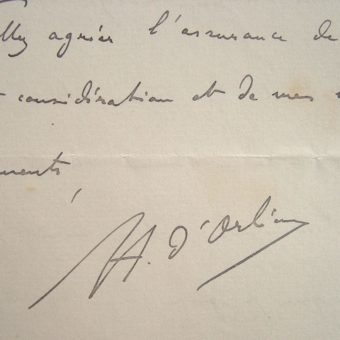 agréer l'assurance de
considération et de mes
ments,
H. d'Orléans